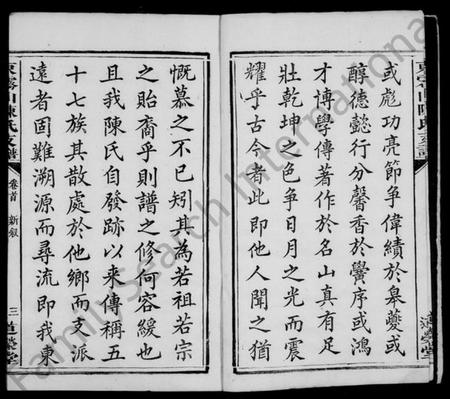 或彪功亮節爭偉績於皋夔或
醇德懿行分馨香於黌序或鴻
才博學傳著作於名山真有足
壯乾坤之色爭日月之光而震
耀乎古今者此即他人聞之猶
東雾山陳氏支譜
卷首
新叙
三
道榮堂
慨慕之不已矧其為若祖若宗
之貽裔乎則譜之修何容緩也
且我陳氏自發跡以來傳稱五
十七族其散處於他鄉而支派
遠者固難溯源而尋流即我東
FamilySearch International